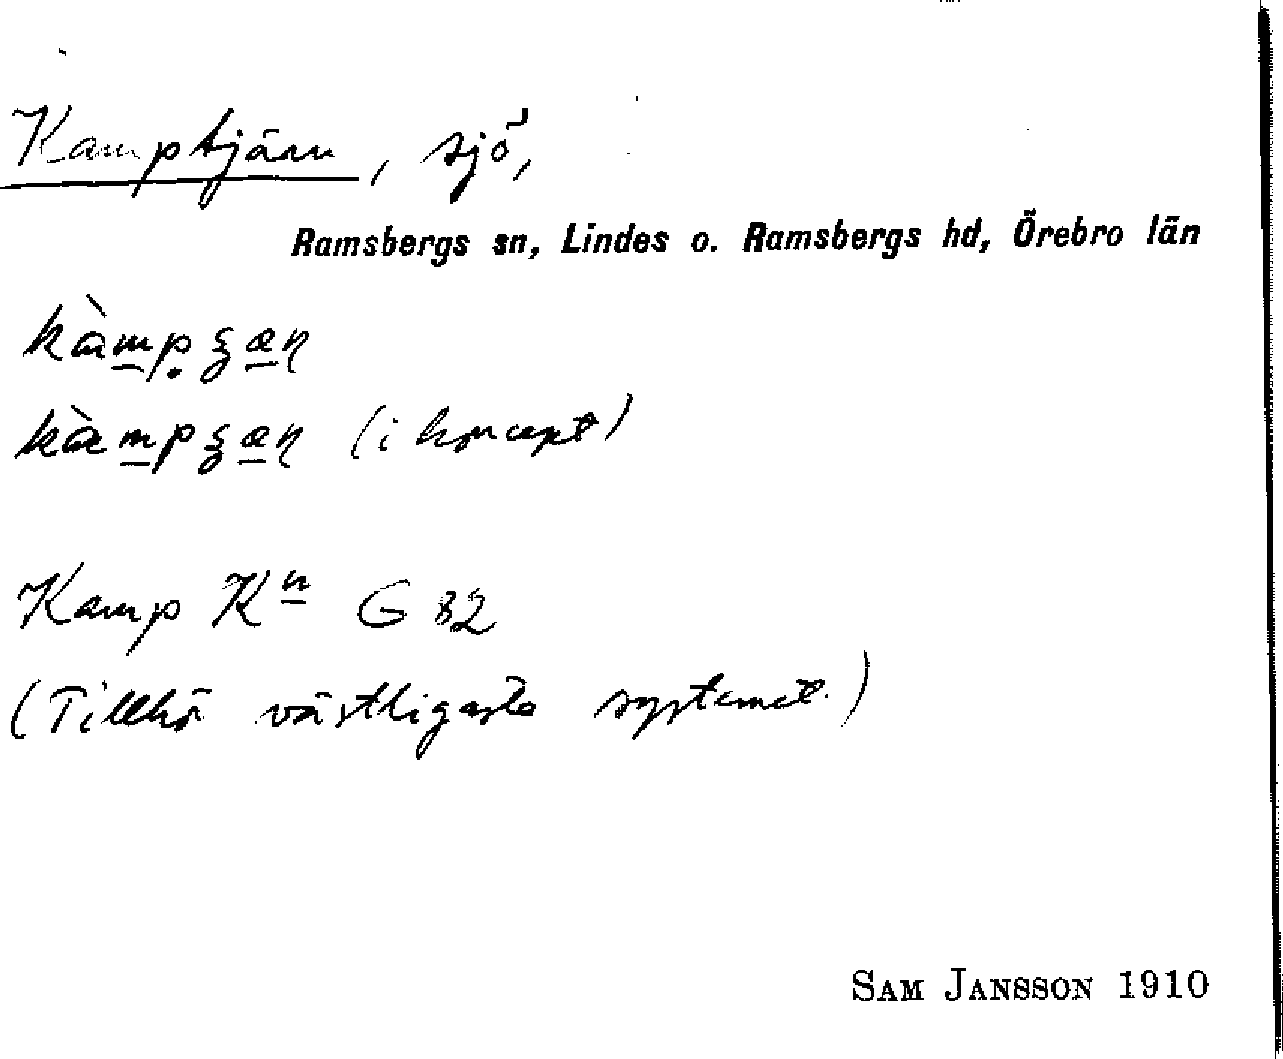 Kamptjärn, sjö,
Ramsbergs sn, Lindes o. Ramsbergs hd, Örebro län
kàmpʂæɳ
kàmpʂæɳ (i koncept)
Kamp Kn G 32
(Tillhör västligaste systemet.)
SAM JANSSON 1910